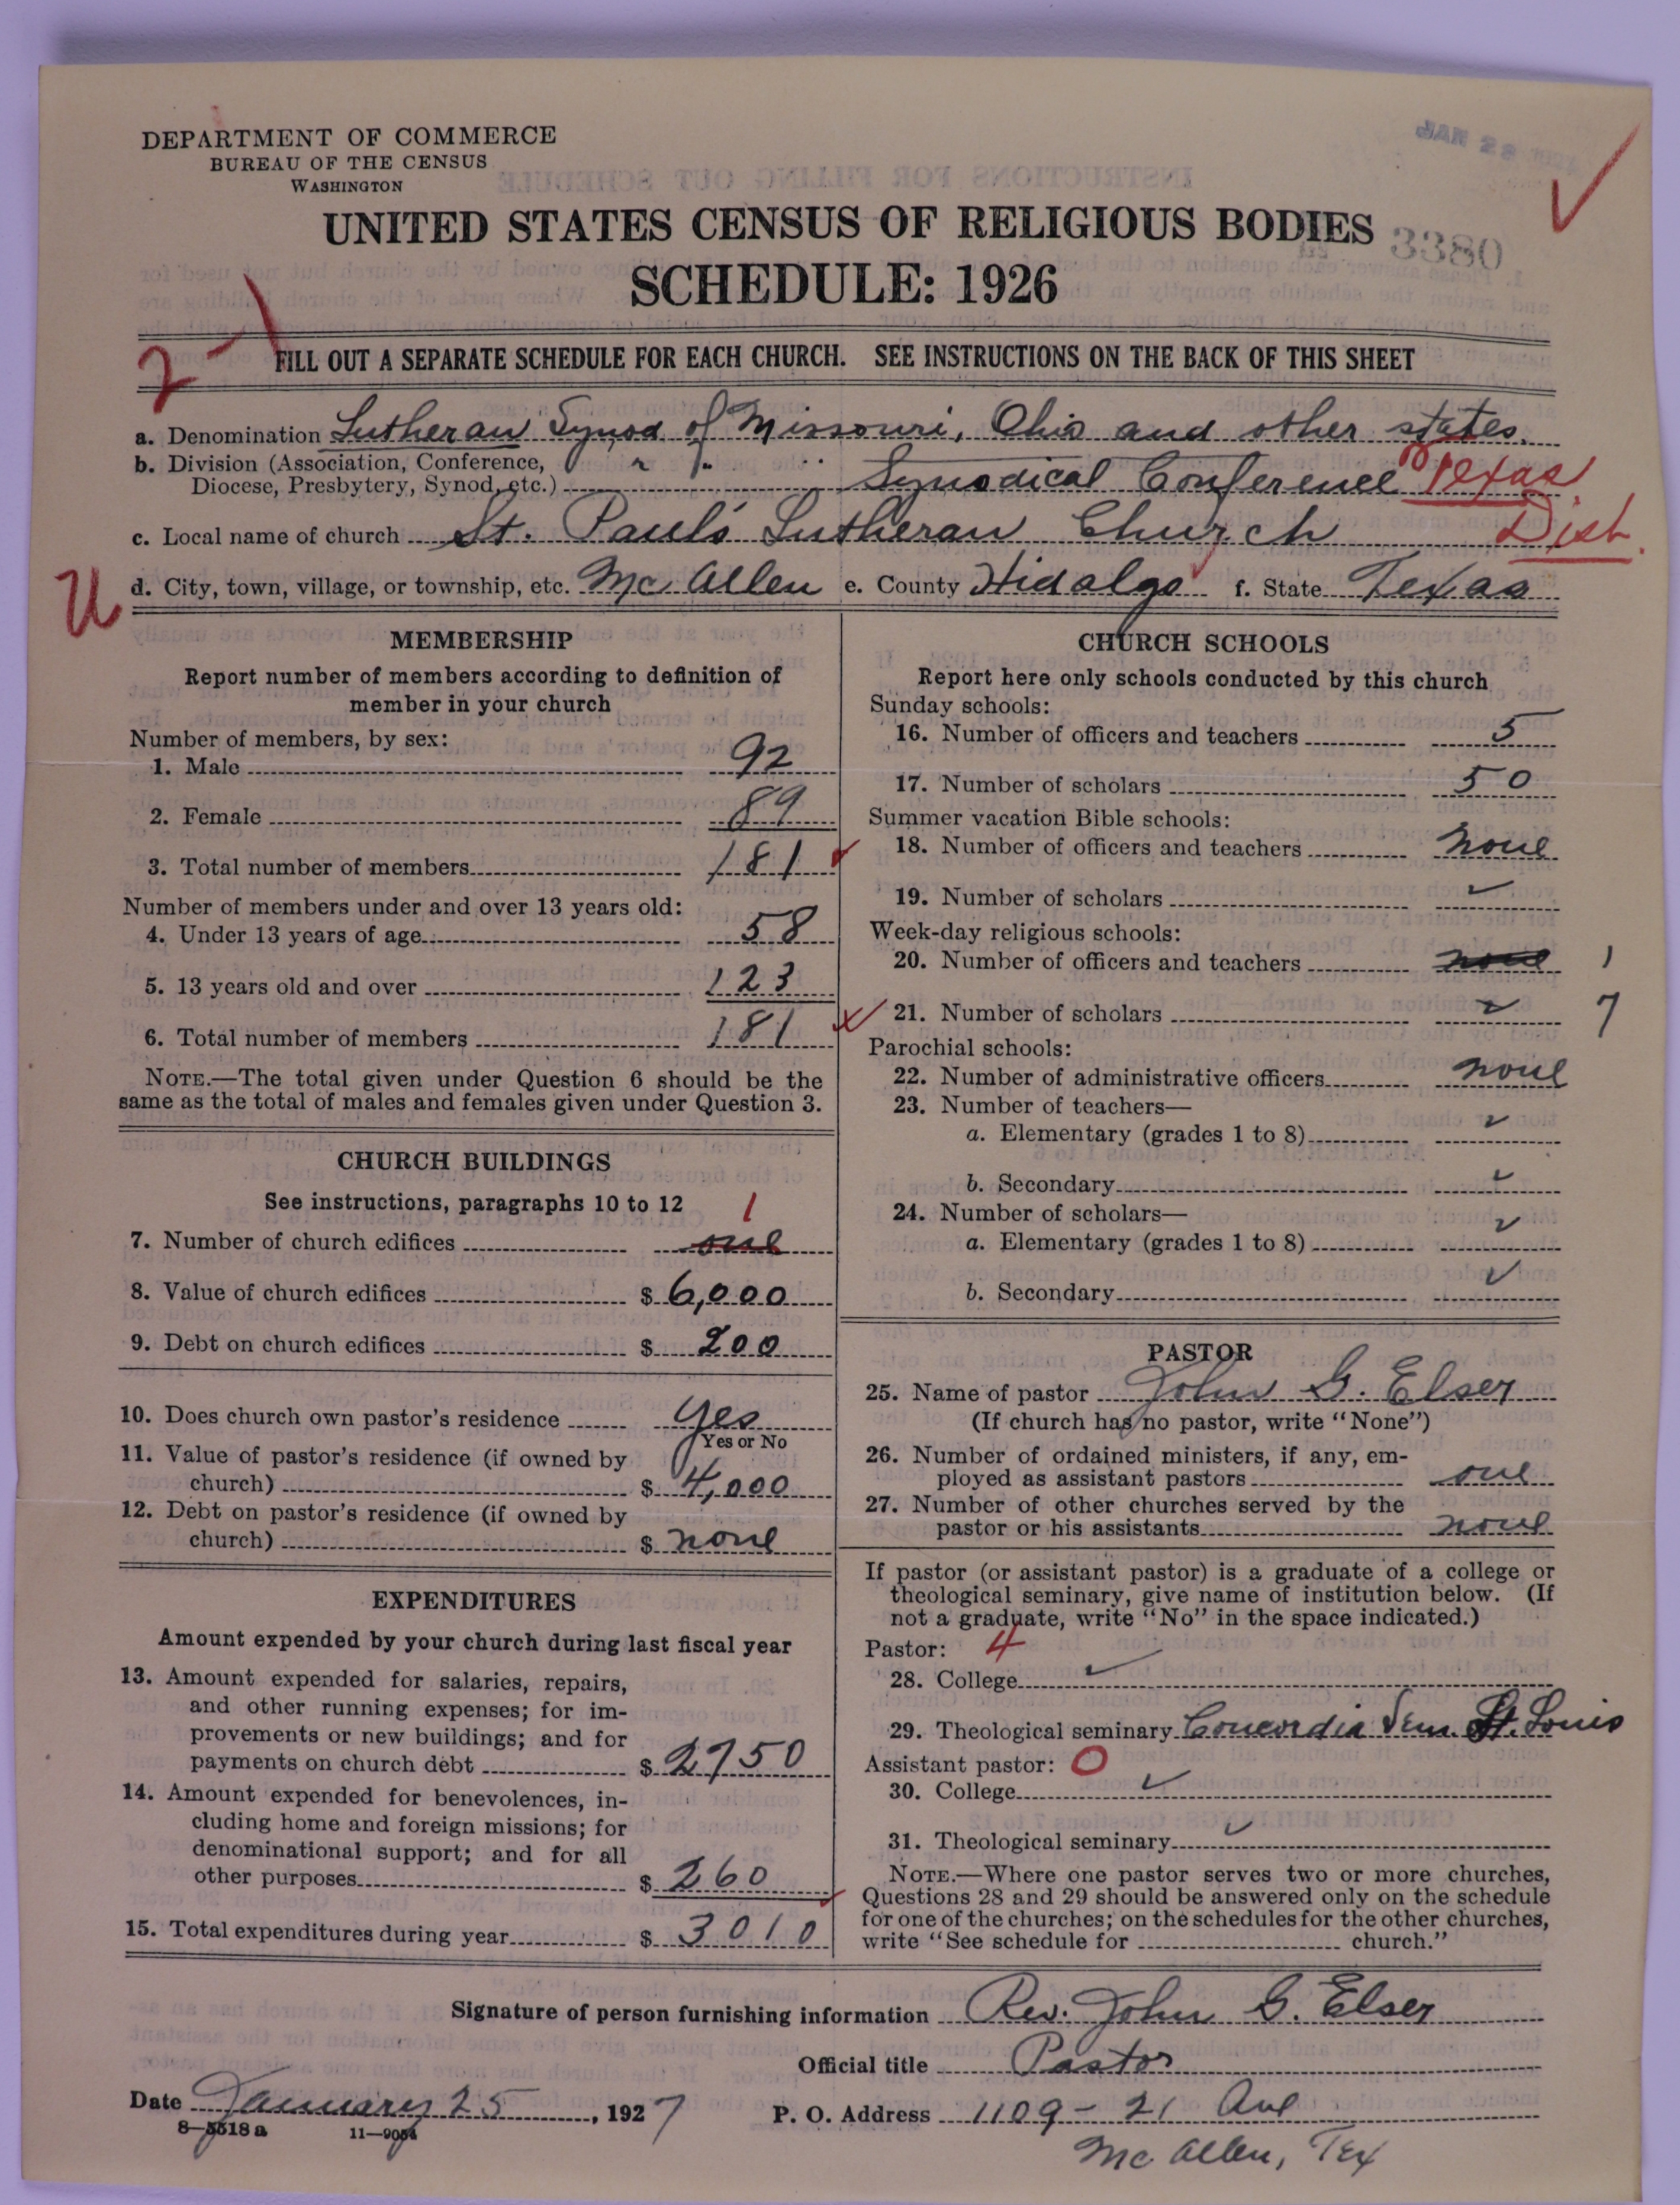 DEPARTMENT OF COMMERCE
BUREAU OF THE CENSUS
WASHINGTON
JAN 28
UNITED STATES CENSUS OF RELIGIOUS BODIES
3380
SCHEDULE: 1926
2-1
FILL OUT A SEPARATE SCHEDULE FOR EACH CHURCH. SEE INSTRUCTIONS ON THE BACK OF THIS SHEET
a. Denomination Lutheran Synod of Missouri, Ohio and other states.
b. Division (Association, Conference,
Diocese, Presbytery, Synod, etc.) Synodical Conference Texas
Dist.
c. Local name of church St. Paul's Lutheran Church
U
d. City, town, village, or township, etc. Mc Allen e. County Hidalgo f. State Texas
MEMBERSHIP
Report number of members according to definition of
member in your church
Number of members, by sex:
1. Male 92
2. Female 89
3. Total number of members 181
Number of members under and over 13 years old:
4. Under 13 years of age 58
5. 13 years old and over 123
6. Total number of members 181
NOTE.—The total given under Question 6 should be the
same as the total of males and females given under Question 3.
CHURCH BUILDINGS
See instructions, paragraphs 10 to 12
1
7. Number of church edifices one
8. Value of church edifices $ 6,000
9. Debt on church edifices $ 200
10. Does church own pastor's residence yes
Yes or No
11. Value of pastor's residence (if owned by
church) $ 4,000
12. Debt on pastor's residence (if owned by
church) $ none
EXPENDITURES
Amount expended by your church during last fiscal year
13. Amount expended for salaries, repairs,
and other running expenses; for im-
provements or new buildings; and for
payments on church debt $ 2750
14. Amount expended for benevolences, in-
cluding home and foreign missions; for
denominational support; and for all
other purposes $ 260
15. Total expenditures during year $ 3010
CHURCH SCHOOLS
Report here only schools conducted by this church
Sunday schools:
16. Number of officers and teachers 5
17. Number of scholars 50
Summer vacation Bible schools:
18. Number of officers and teachers none
19. Number of scholars
Week-day religious schools:
20. Number of officers and teachers none 1
21. Number of scholars 7
Parochial schools:
22. Number of administrative officers none
23. Number of teachers—
a. Elementary (grades 1 to 8)
b. Secondary
24. Number of scholars—
a. Elementary (grades 1 to 8)
b. Secondary
PASTOR
25. Name of pastor John G. Elser
(If church has no pastor, write "None")
26. Number of ordained ministers, if any, em-
ployed as assistant pastors one
27. Number of other churches served by the
pastor or his assistants none
If pastor (or assistant pastor) is a graduate of a college or
theological seminary, give name of institution below. (If
not a graduate, write "No" in the space indicated.)
Pastor: 4
28. College
29. Theological seminary Concordia Sem. St. Louis
Assistant pastor: 0
30. College
31. Theological seminary
NOTE.—Where one pastor serves two or more churches,
Questions 28 and 29 should be answered only on the schedule
for one of the churches; on the schedules for the other churches,
write "See schedule for church."
Signature of person furnishing information Rev. John G. Elser
Official title Pastor
Date January 25, 1927
P. O. Address 1109 - 21 Ave
Mc Allen, Tex
8—5518 a 11—9054